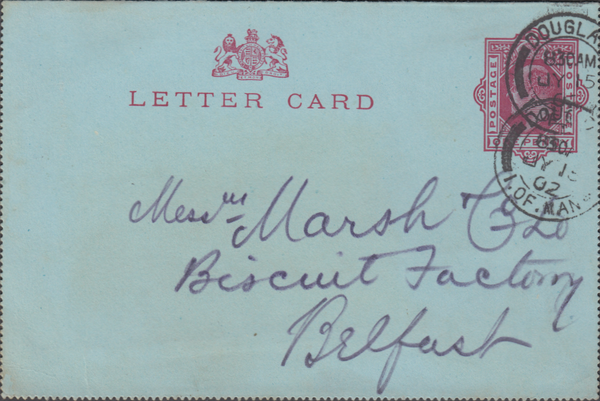 LETTER CARD
POSTAGE
DOUGLA
830AM
I. OF. MAN
02
Messrs Marsh & Co
Biscuit Factory
Belfast